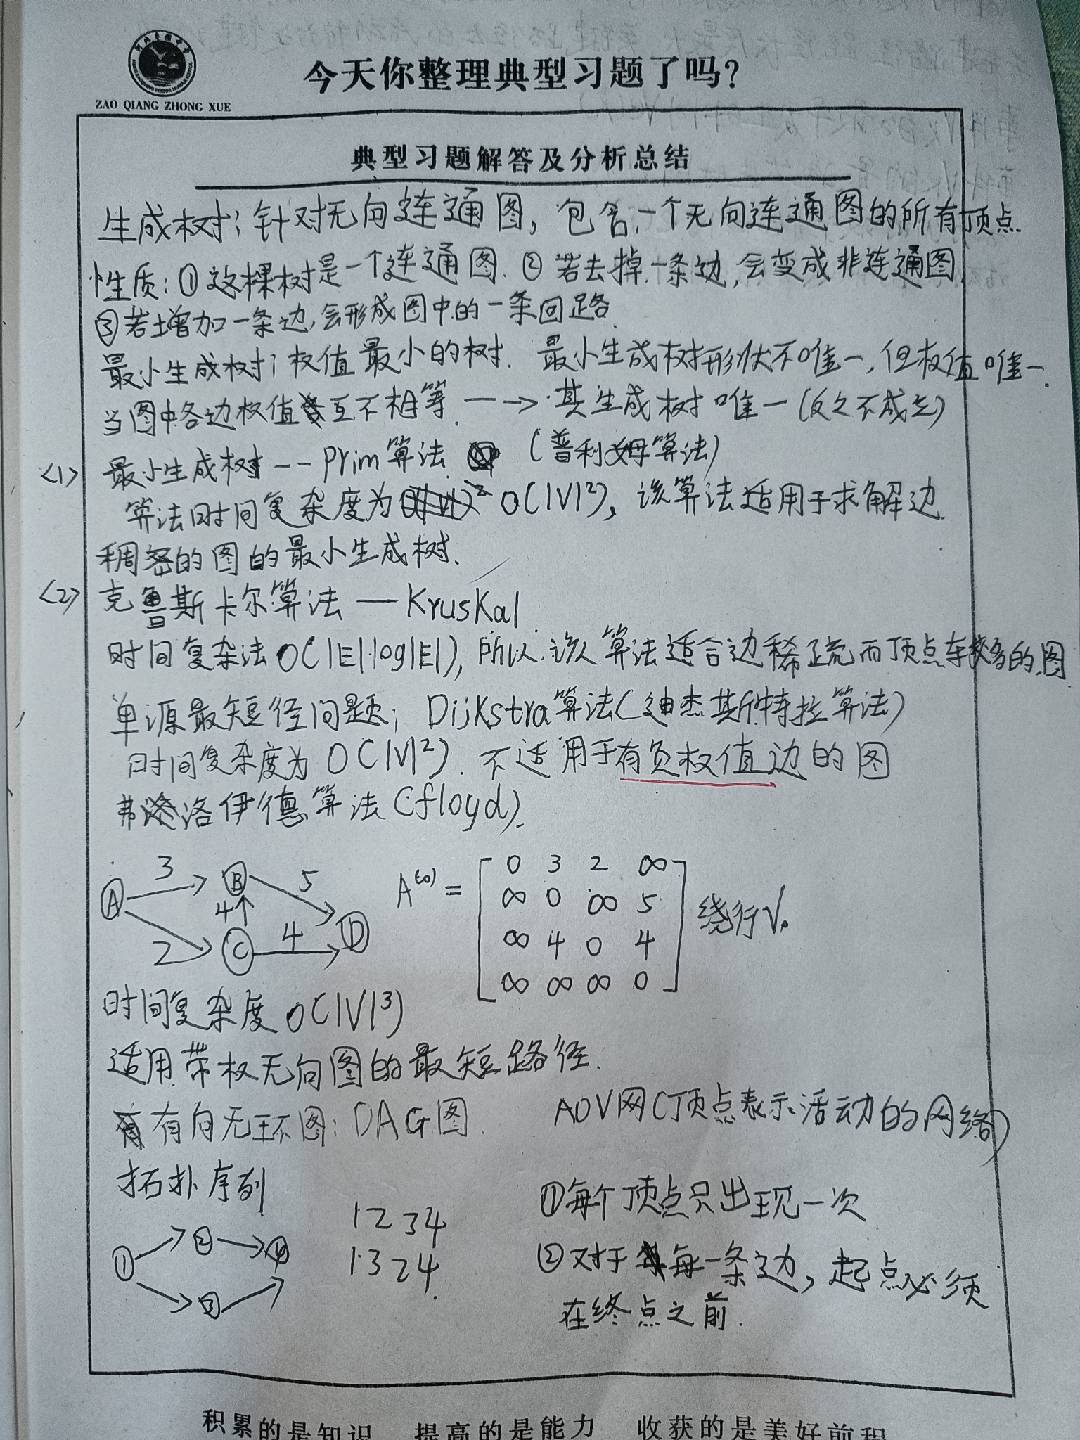 今天你整理典型习题了吗?
ZAO QIANG ZHONG XUE
典型习题解答及分析总结
生成树:针对无向连通图,包含一个无向连通图的所有顶点.
性质:①这棵树是一个连通图.②若去掉一条边,会变成非连通图.
③若增加一条边,会形成图中的一条回路
最小生成树:权值最小的树. 最小生成树形状不唯一,但权值唯一.
当图中各边权值互不相等 —→ 其生成树唯一(反之不成立)
<1> 最小生成树 -- Prim算法 (普利姆算法)
算法时间复杂度为 O(|V|²), 该算法适用于求解边
稠密的图的最小生成树.
<2> 克鲁斯卡尔算法 — Kruskal
时间复杂法 O(|E|log|E|), 所以.该算法适合边稀疏而顶点较多的图
单源最短径问题; Dijkstra算法(迪杰斯特拉算法)
时间复杂度为 O(|V|²). 不适用于有负权值边的图
弗洛伊德算法(floyd).
A 3 B 5 4 2 C 4 D
A⁽⁰⁾ =
0 3 2 ∞
∞ 0 ∞ 5
∞ 4 0 4
∞ ∞ ∞ 0
绕行V₀
时间复杂度 O(|V|³)
适用带权无向图的最短路径.
有向无环图: DAG图. AOV网(顶点表示活动的网络)
拓扑序列
① ② ③ ④
1234
1324.
①每个顶点只出现一次
②对于每一条边, 起点必须
在终点之前.
积累的是知识 提高的是能力 收获的是美好前程